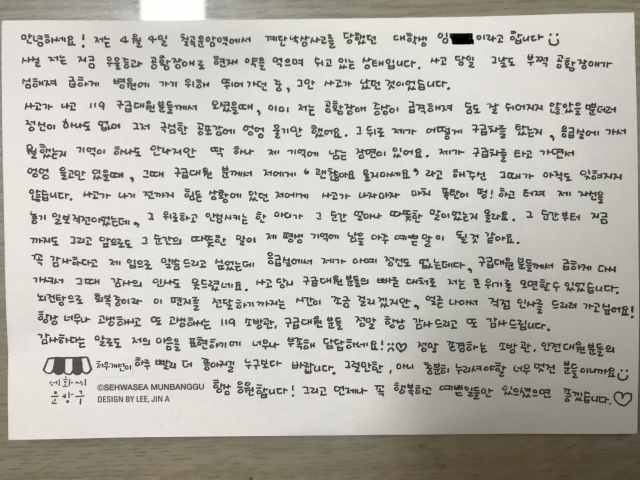 안녕하세요! 저는 4월 4일 칠곡운암역에서 계단낙상사고를 당했던 대학생 임 이라고 합니다
사실 저는 지금 우울증과 공황장애로 현재 약을 먹으며 쉬고 있는 상태입니다. 사고 당일 그날도 부쩍 공황장애가
심해져 급하게 병원에 가기 위해 뛰어가던 중, 그만 사고가 났던 것이었습니다.
사고가 나고 119 구급대원분들께서 오셨을때, 이미 저는 공황장애 증상이 급격하져 숨도 잘 쉬어지지 않았을 뿐더러
정신이 하나도 없어 그저 극심한 공포감에 엉엉 울기만 했어요. 그 뒤로 제가 어떻게 구급차를 탔는지, 응급실에 가서
뭘 했는지 기억이 하나도 안나지만 딱 하나 제 기억에 남는 장면이 있어요. 제가 구급차를 타고 가면서
엉엉 울고만 있을때, 그때 구급대원 분께서 저에게 "괜찮아요 울지마세요" 라고 해주신 그때가 아직도 잊혀지지
않습니다. 사고가 나기 전까지 힘든 상황에 있던 저에게 사고가 나자마자 마치 폭탄이 펑! 하고 터져 제 자신을
놓기 일보직전이었는데, 그 위로하고 안심시키는 한 마디가 그 순간 얼마나 따뜻한 말이었는지 몰라요. 그 순간부터 지금
까지도 그리고 앞으로도 그 순간의 따뜻한 말이 제 평생 기억에 남을 아주 예쁜 말이 될것 같아요.
꼭 감사하다고 제 입으로 말씀드리고 싶었는데 응급실에서 제가 아예 정신도 없는데다, 구급대원분들께서 급하게 다시
가셔서 그때 감사의 인사도 못드렸네요. 사고 당시 구급대원분들의 빠른 대처로 저는 큰 위기를 모면할수 있었습니다.
뇌진탕으로 회복중이라 이 편지를 전달하기까지는 시간이 조금 걸리겠지만, 얼른 나아서 직접 인사를 드리러 가고싶어요!
항상 너무나 고생하시고 또 고생하시는 119 소방관, 구급대원분들 정말 항상 감사드리고 또 감사드립니다.
감사하다는 말로도 저의 마음을 표현하기에 너무나 부족해 답답하네요! 정말 존경하는 소방관, 안전대원분들의
처우개선이 하루 빨리 더 좋아지길 누구보다 바랍니다. 그럴만한, 아니 충분히 누리셔야할 너무 멋진 분들이니까요
항상 응원합니다! 그리고 언제나 꼭 행복하고 예쁜일들만 있으셨으면 좋겠습니다.
세화씨
문방구
©SEHWASEA MUNBANGGU
DESIGN BY LEE, JIN A